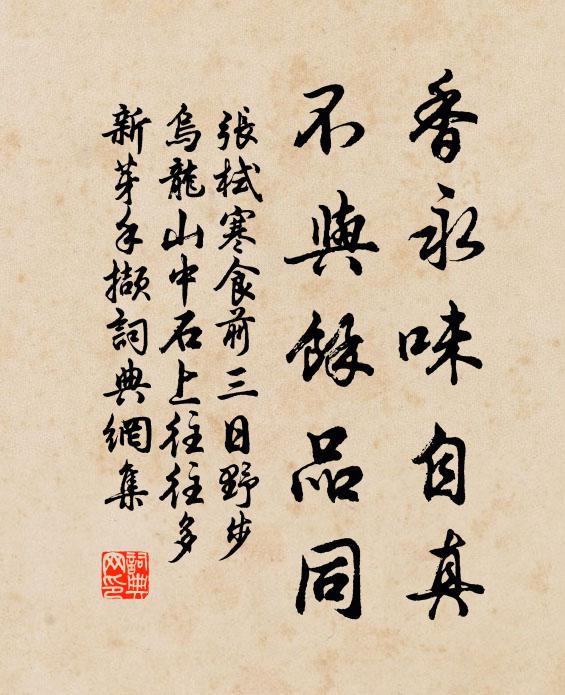 香永味自真
不與餘品同
張栻寒食前三日野步
烏龍山中石上往往多
新芽手擷詞典網集
詞典網印